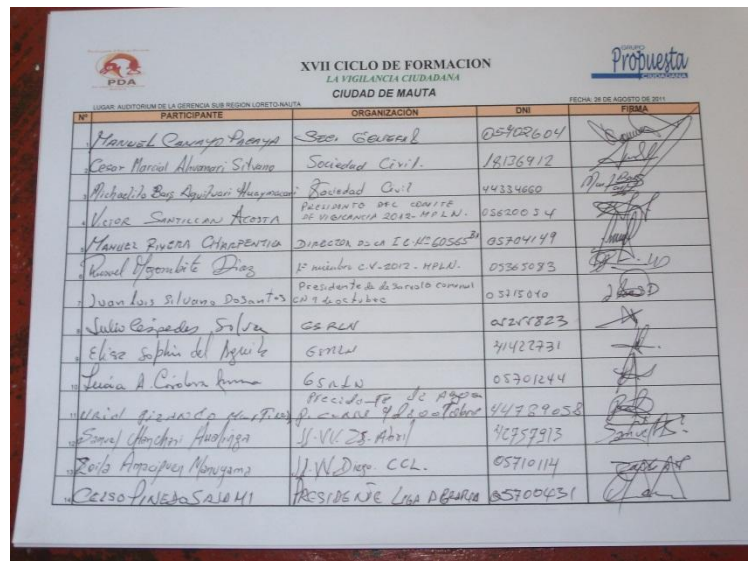 PDA
XVII CICLO DE FORMACION
LA VIGILANCIA CIUDADANA
CIUDAD DE MAUTA
GRUPO
Propuesta
CIUDADANA
LUGAR: AUDITORIUM DE LA GERENCIA SUB REGION LORETO-NAUTA
FECHA: 26 DE AGOSTO DE 2011
Nº PARTICIPANTE ORGANIZACIÓN DNI FIRMA
1 MANUEL CANAYO PACAYA SEC. GENERAL 05702604
2 Cesar Marcial Ahuanari Silvano Sociedad Civil. 18136912
3 Sociedad Civil 44334660
4 VICTOR SANTILLAN ACOSTA PRESIDENTE DEL COMITÉ
DE VIGILANCIA 2012- MPLN. 05620034
5 MANUEL RIVERA CHARPENTIER DIRECTOR DE LA I E Nº 60565 05704149
6 Mozombite Diaz 1º miembro C.V-2012- MPLN. 05365083
7 Juan Luis Silvano DoSantos Presidente de desarrollo comunal
9 de octubre 05715040
8 Julio Céspedes GSRLN 05255823
9 Elisa Sophia del Aguila GSRLN 41422731
10 Lucia A. GSRLN 05701244
11 Presidente de Agua
9 de octubre 44789058
12 Samuel JJ.VV. 28-Abril
13 Zoila JJ.VV Diego. CCL. 05710114
14 CELSO PINEDO SAJAMI PRESIDENTE LIGA 05700431